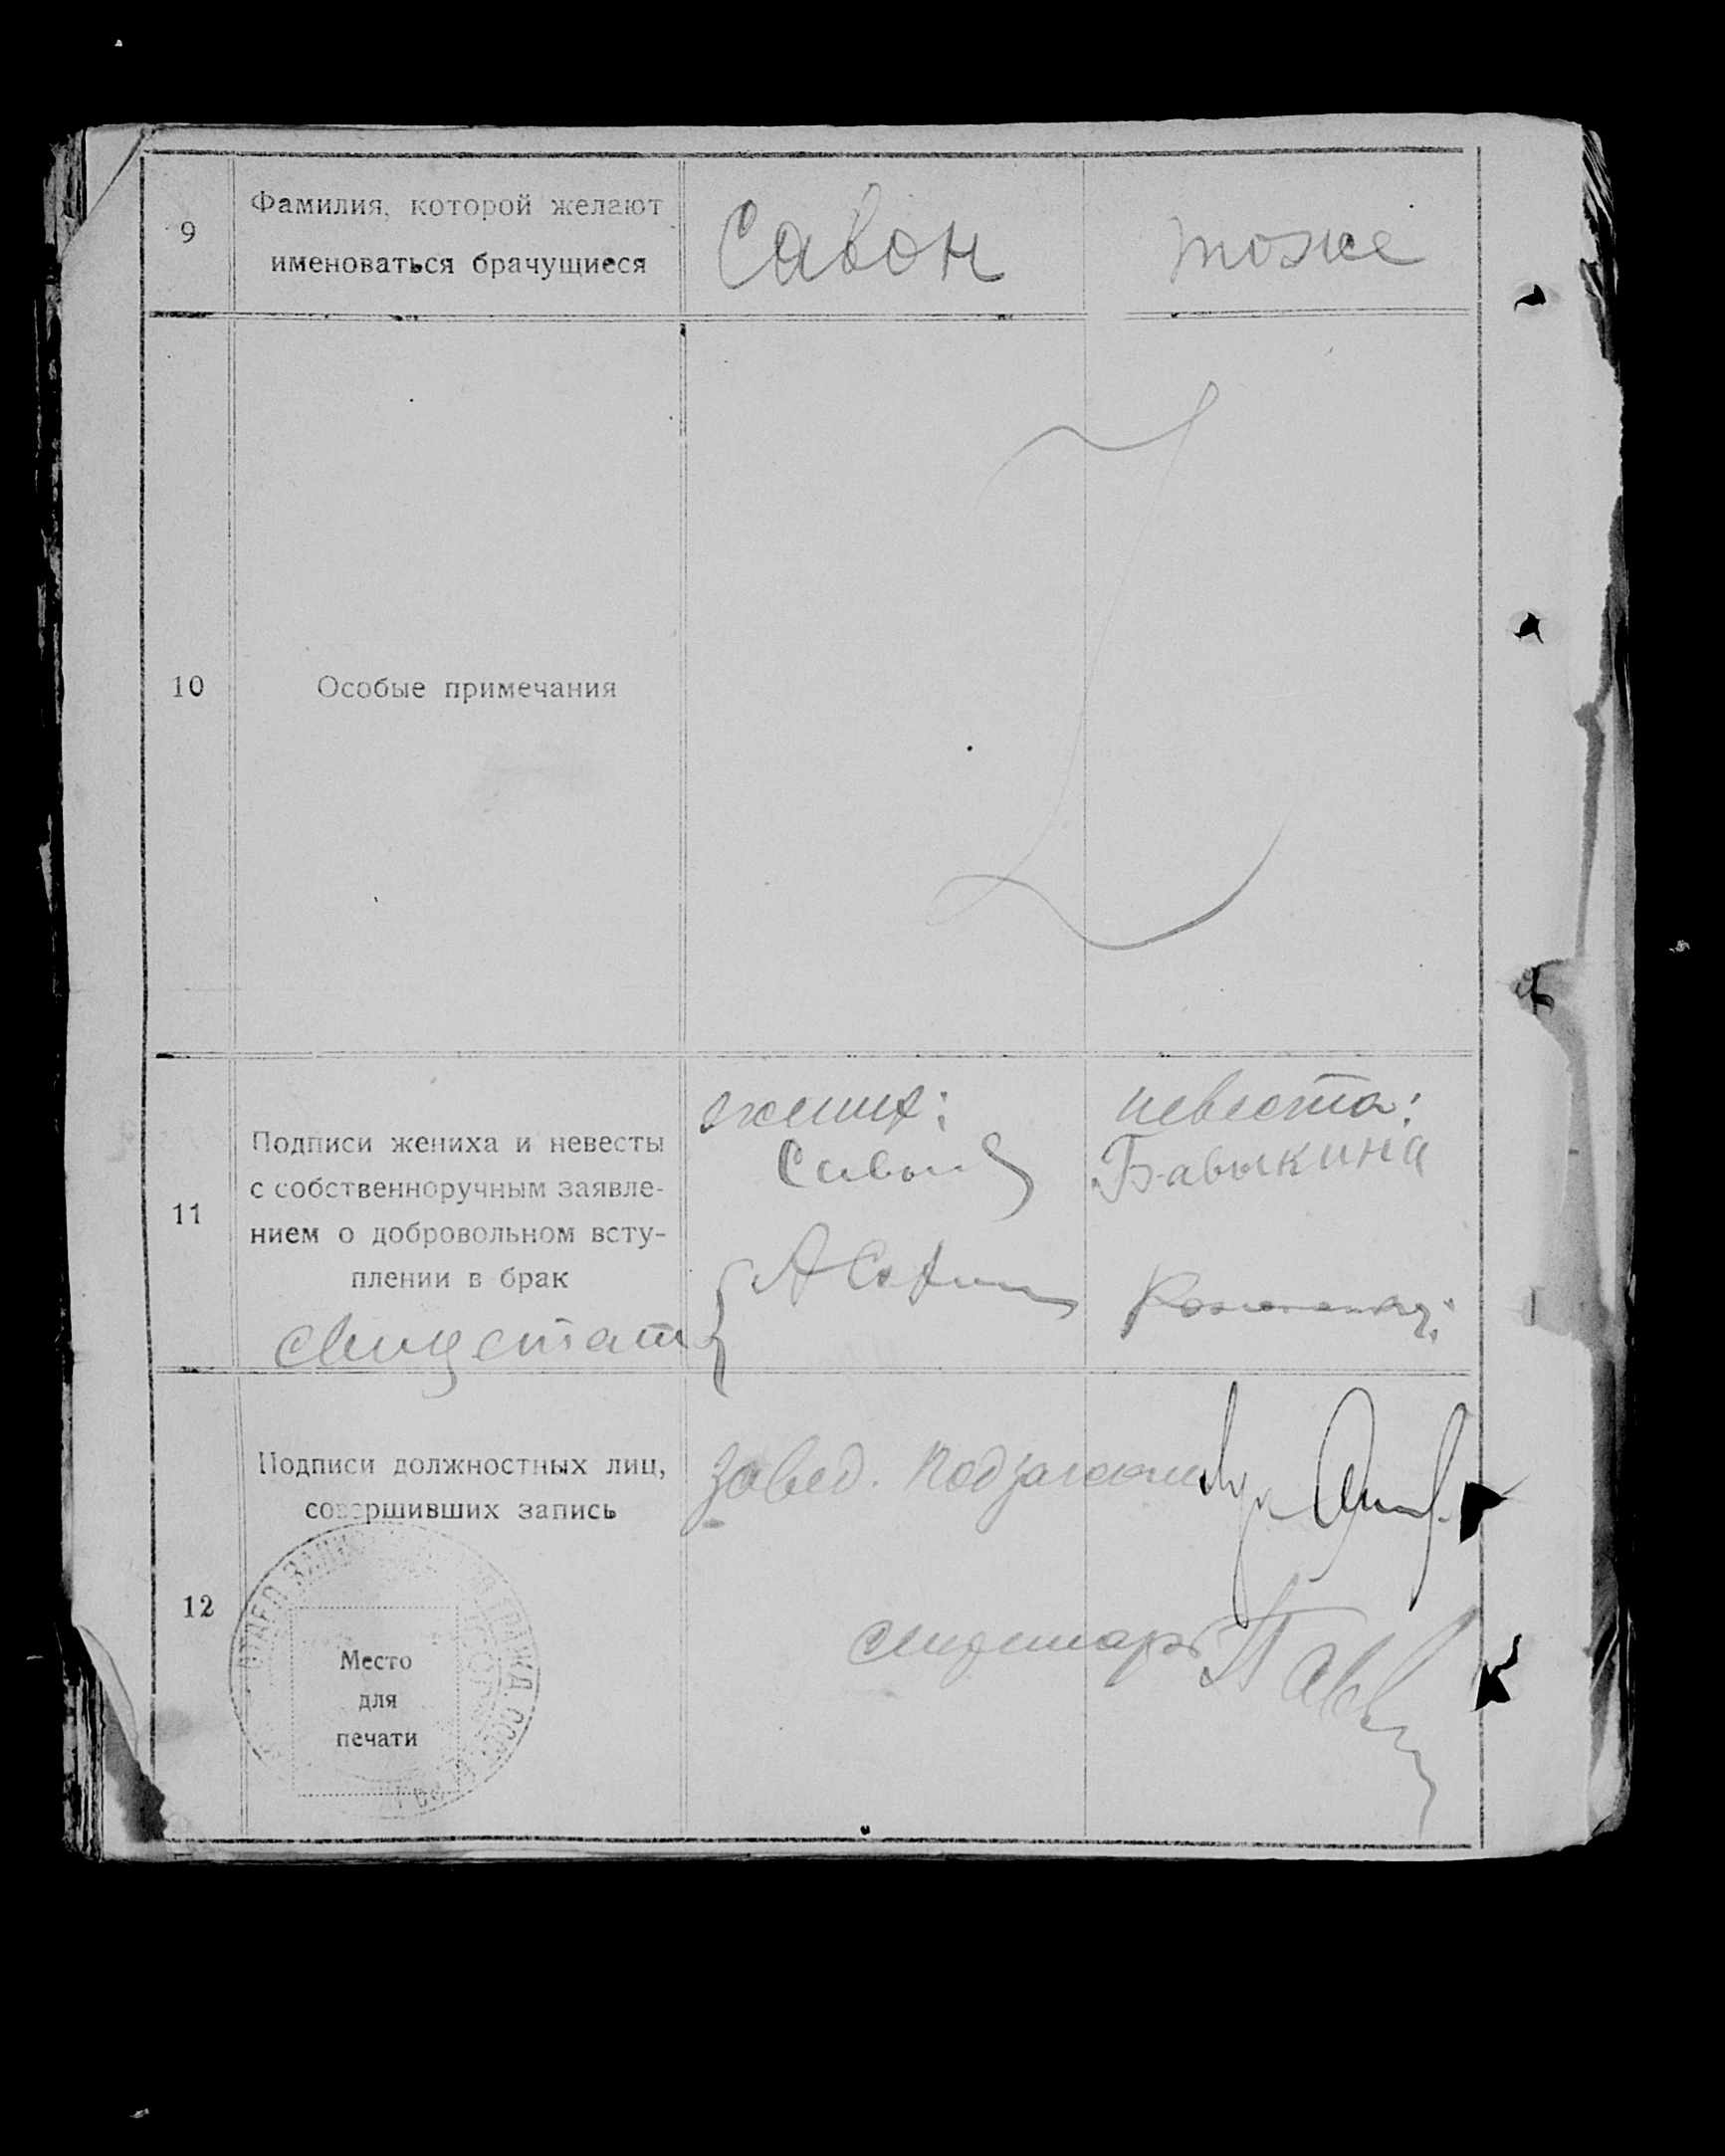 9
Фамилия, которой желают
именоваться брачущиеся
Савон
тоже
10
Особые примечания
11
Подписи жениха и невесты
с собственноручным заявле-
нием о добровольном всту-
плении в брак
жених:
Савон
невеста:
Бавыкина
12
Подписи должностных лиц,
совершивших запись
Завед. подзагсом
Место
для
печати